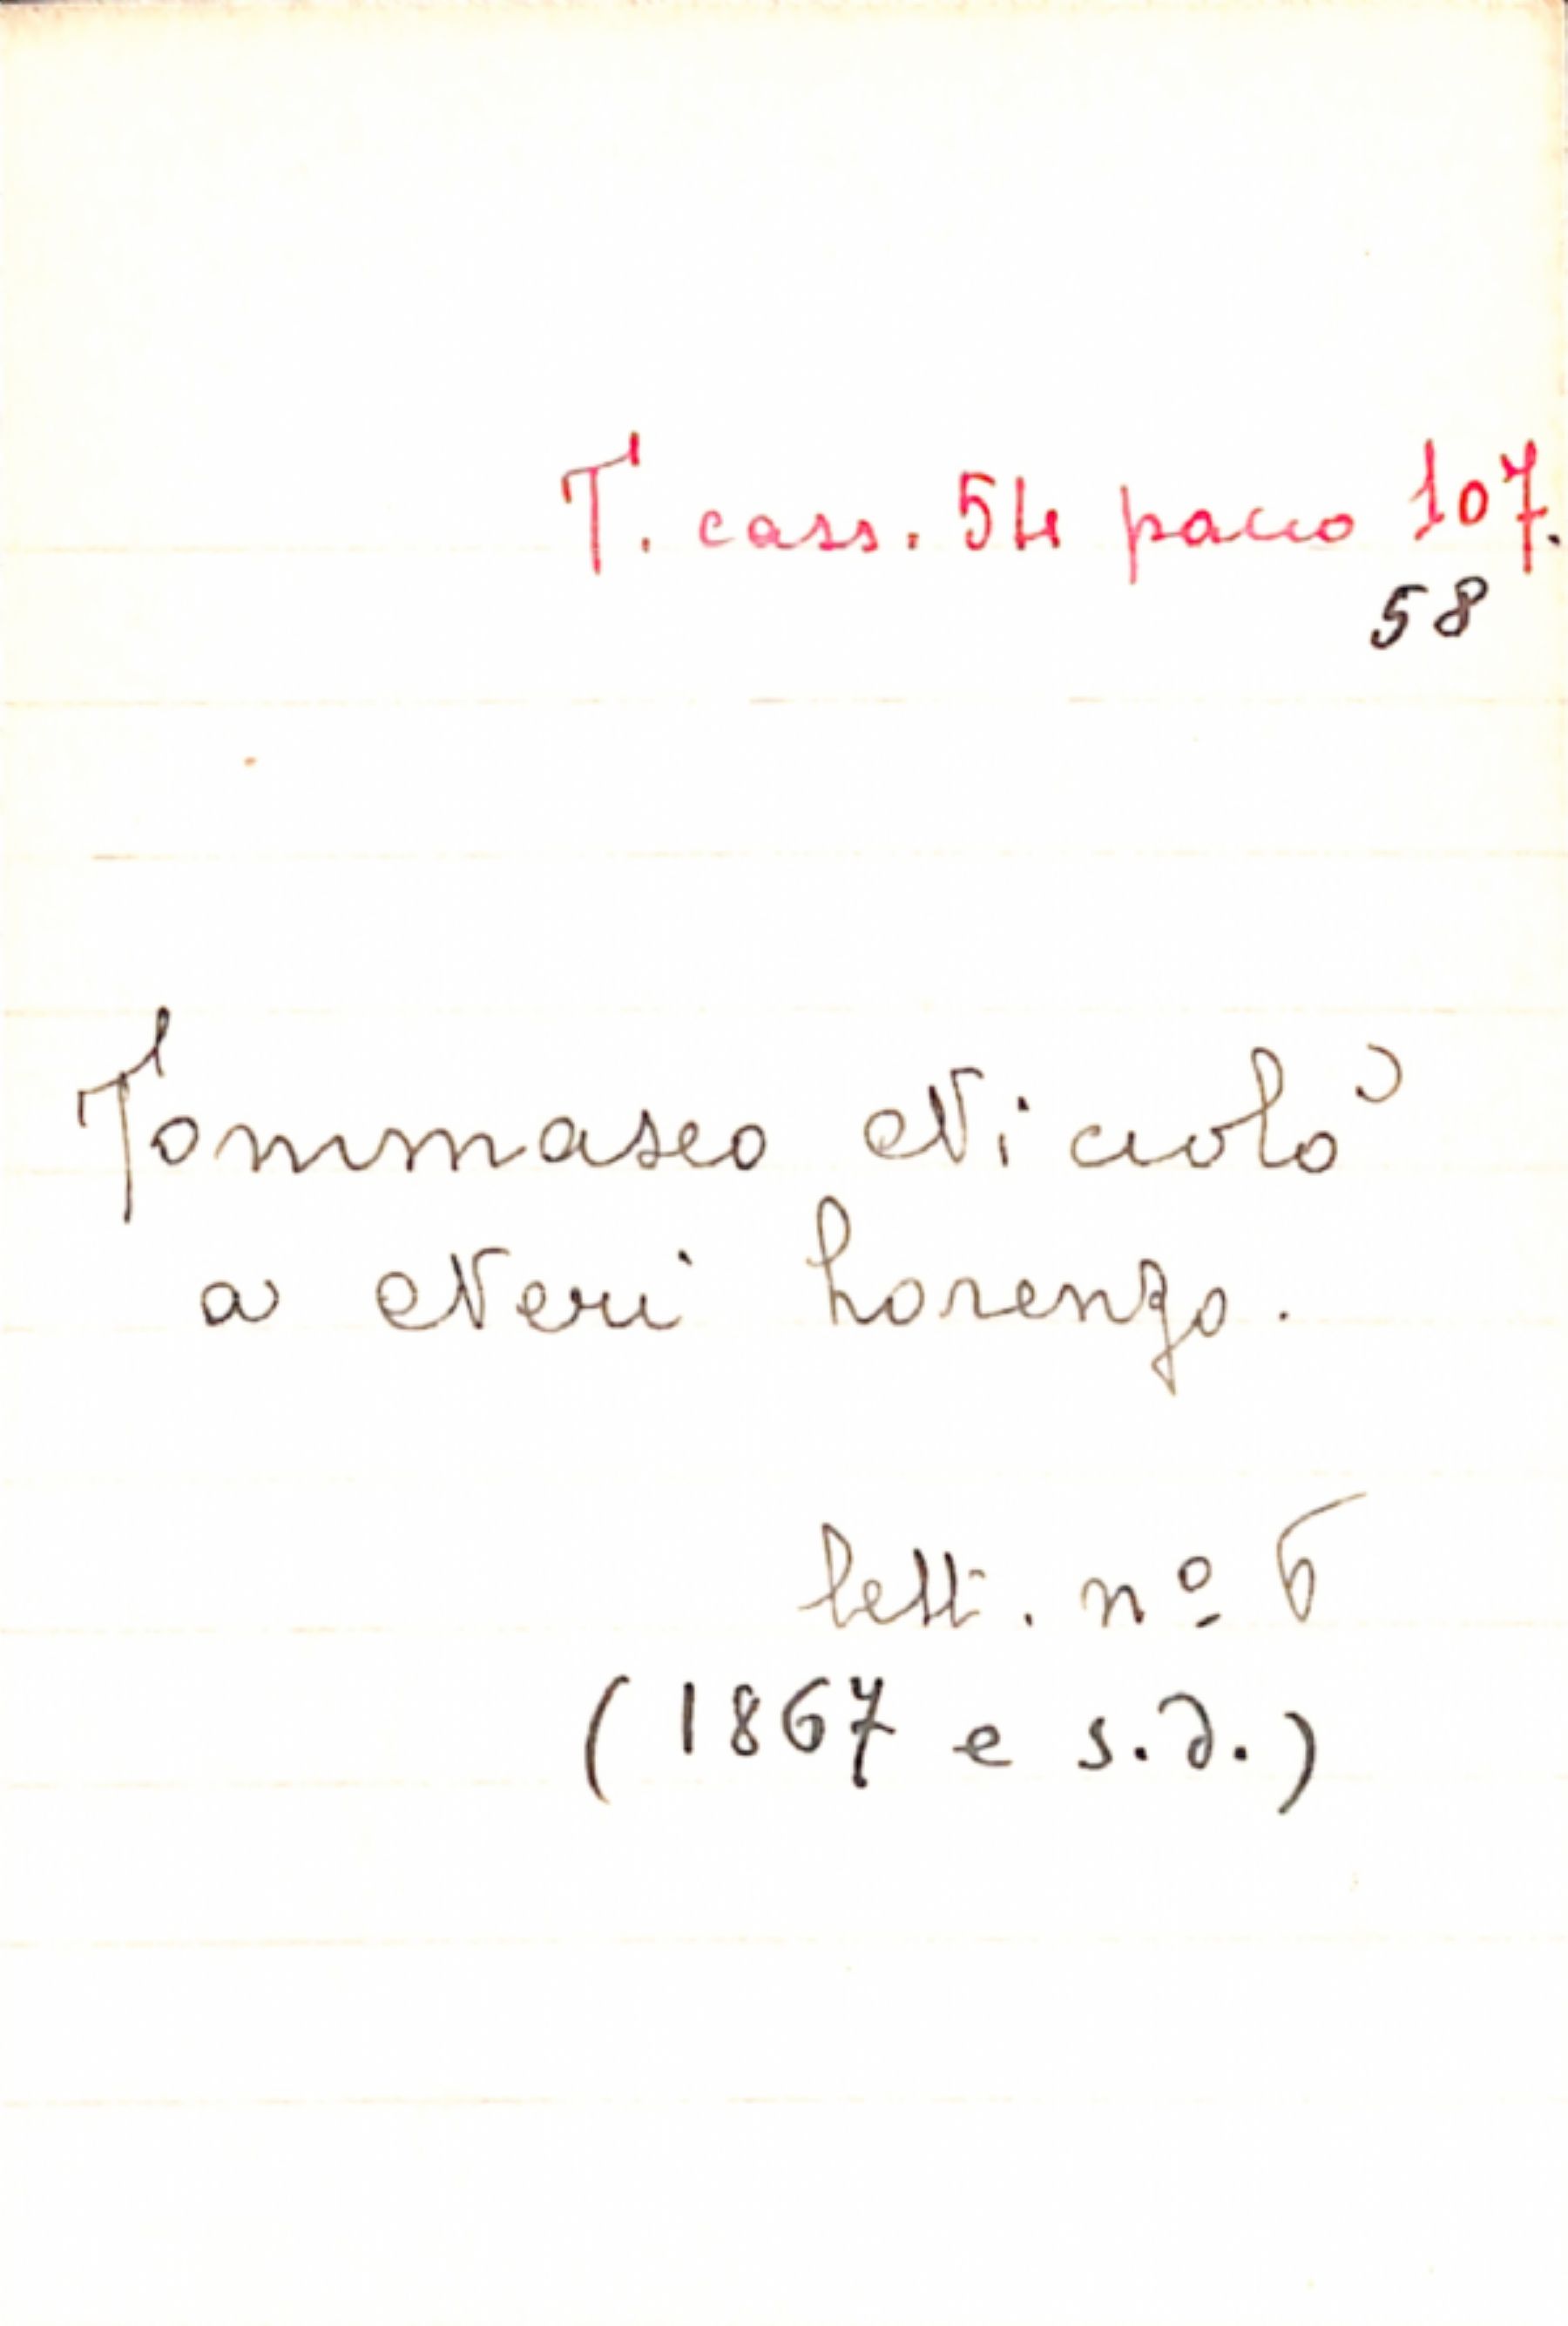 T. cass. 54 pacco 107.
58
Tommaseo Niccolò
a Neri Lorenzo.
lett. nº 6
(1867 e s.d.)